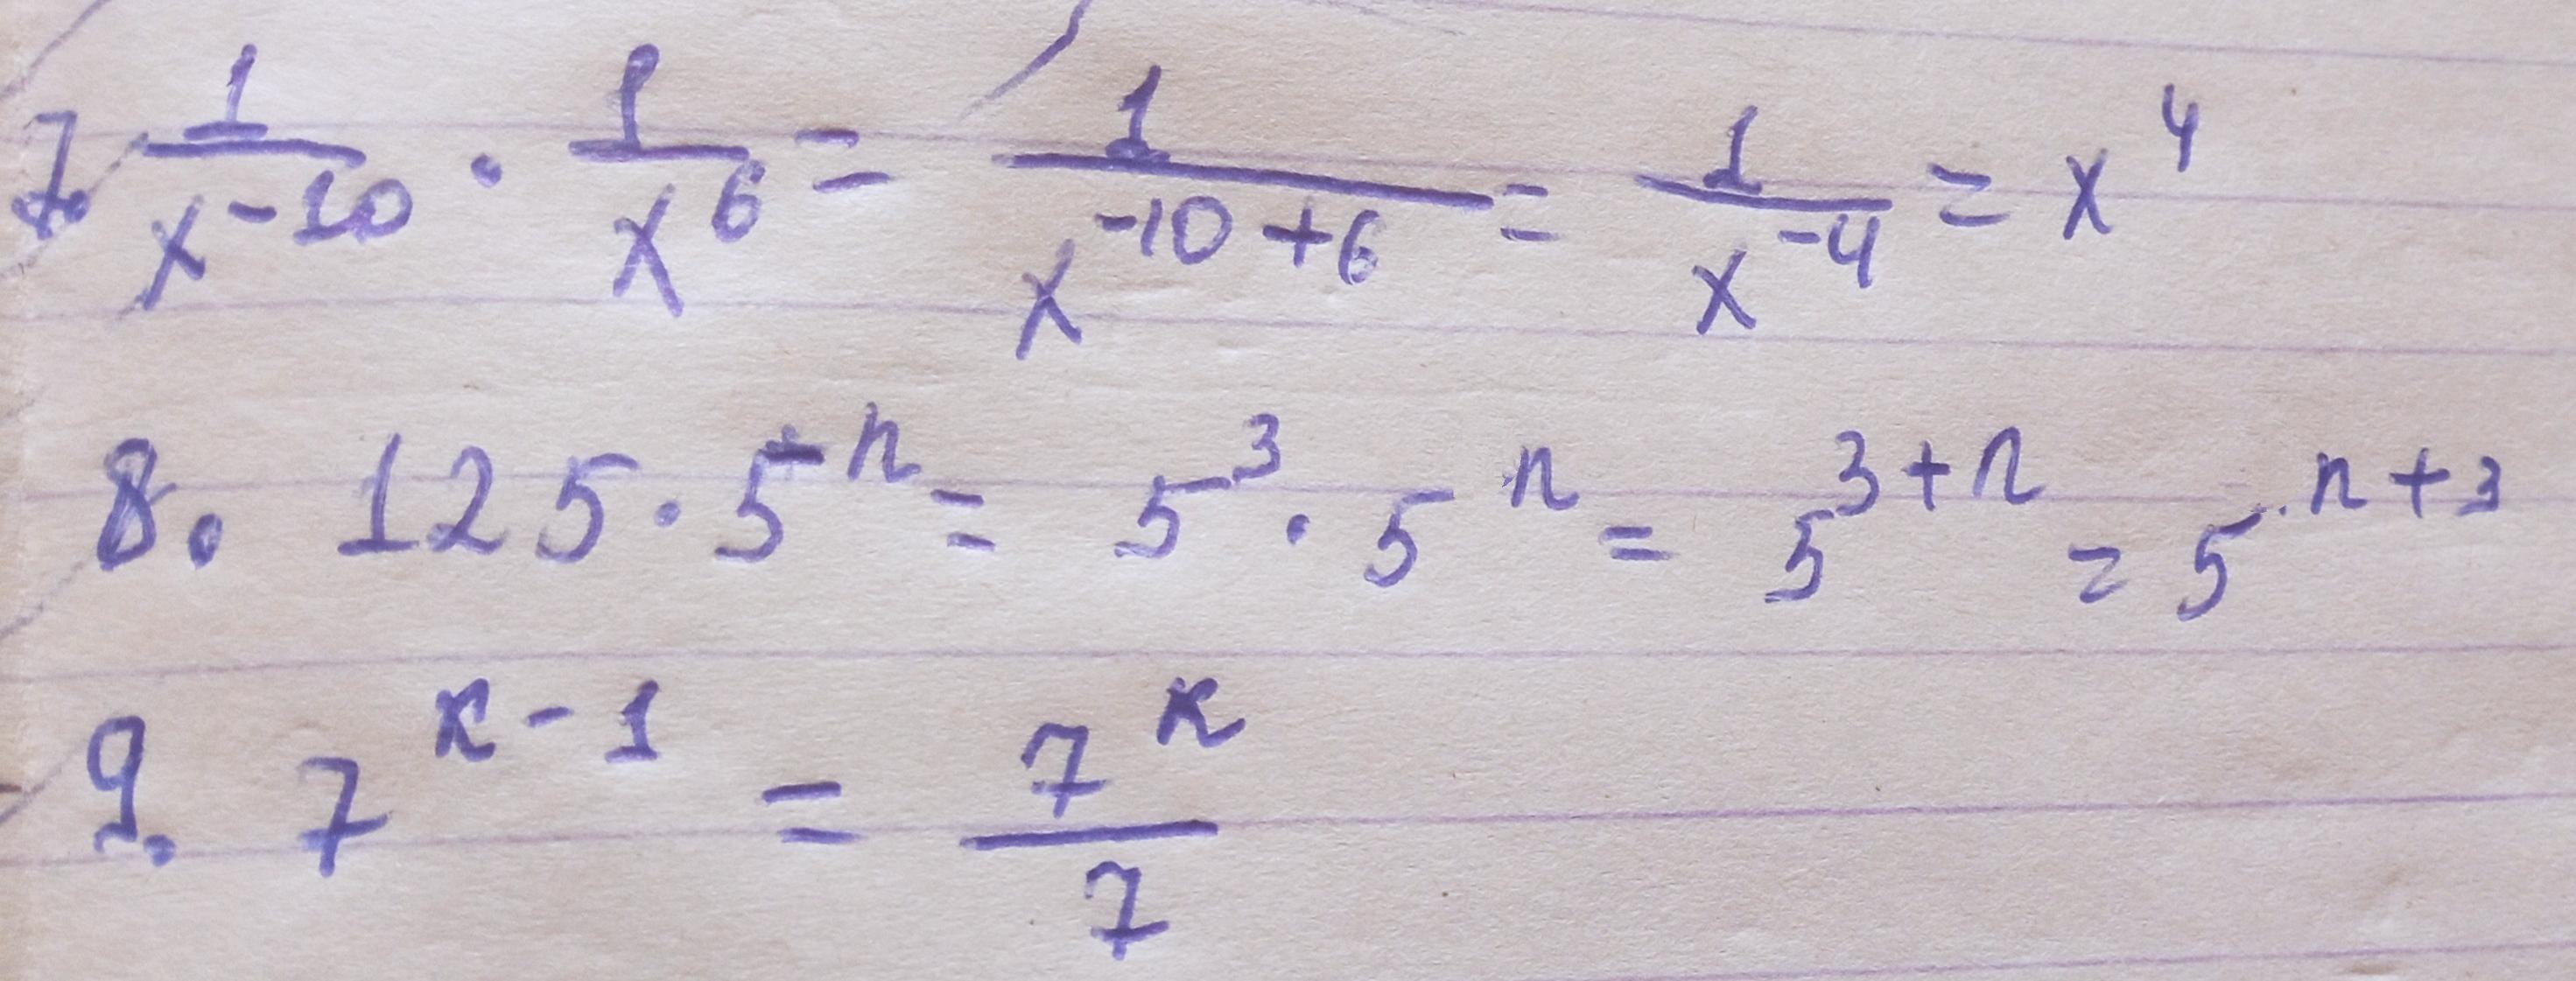 7. 1/x^-10 · 1/x^6 = 1/x^-10+6 = 1/x^-4 = x^4
8. 125 · 5^n = 5^3 · 5^n = 5^3+n = 5^n+3
9. 7^k-1 = 7^k/7